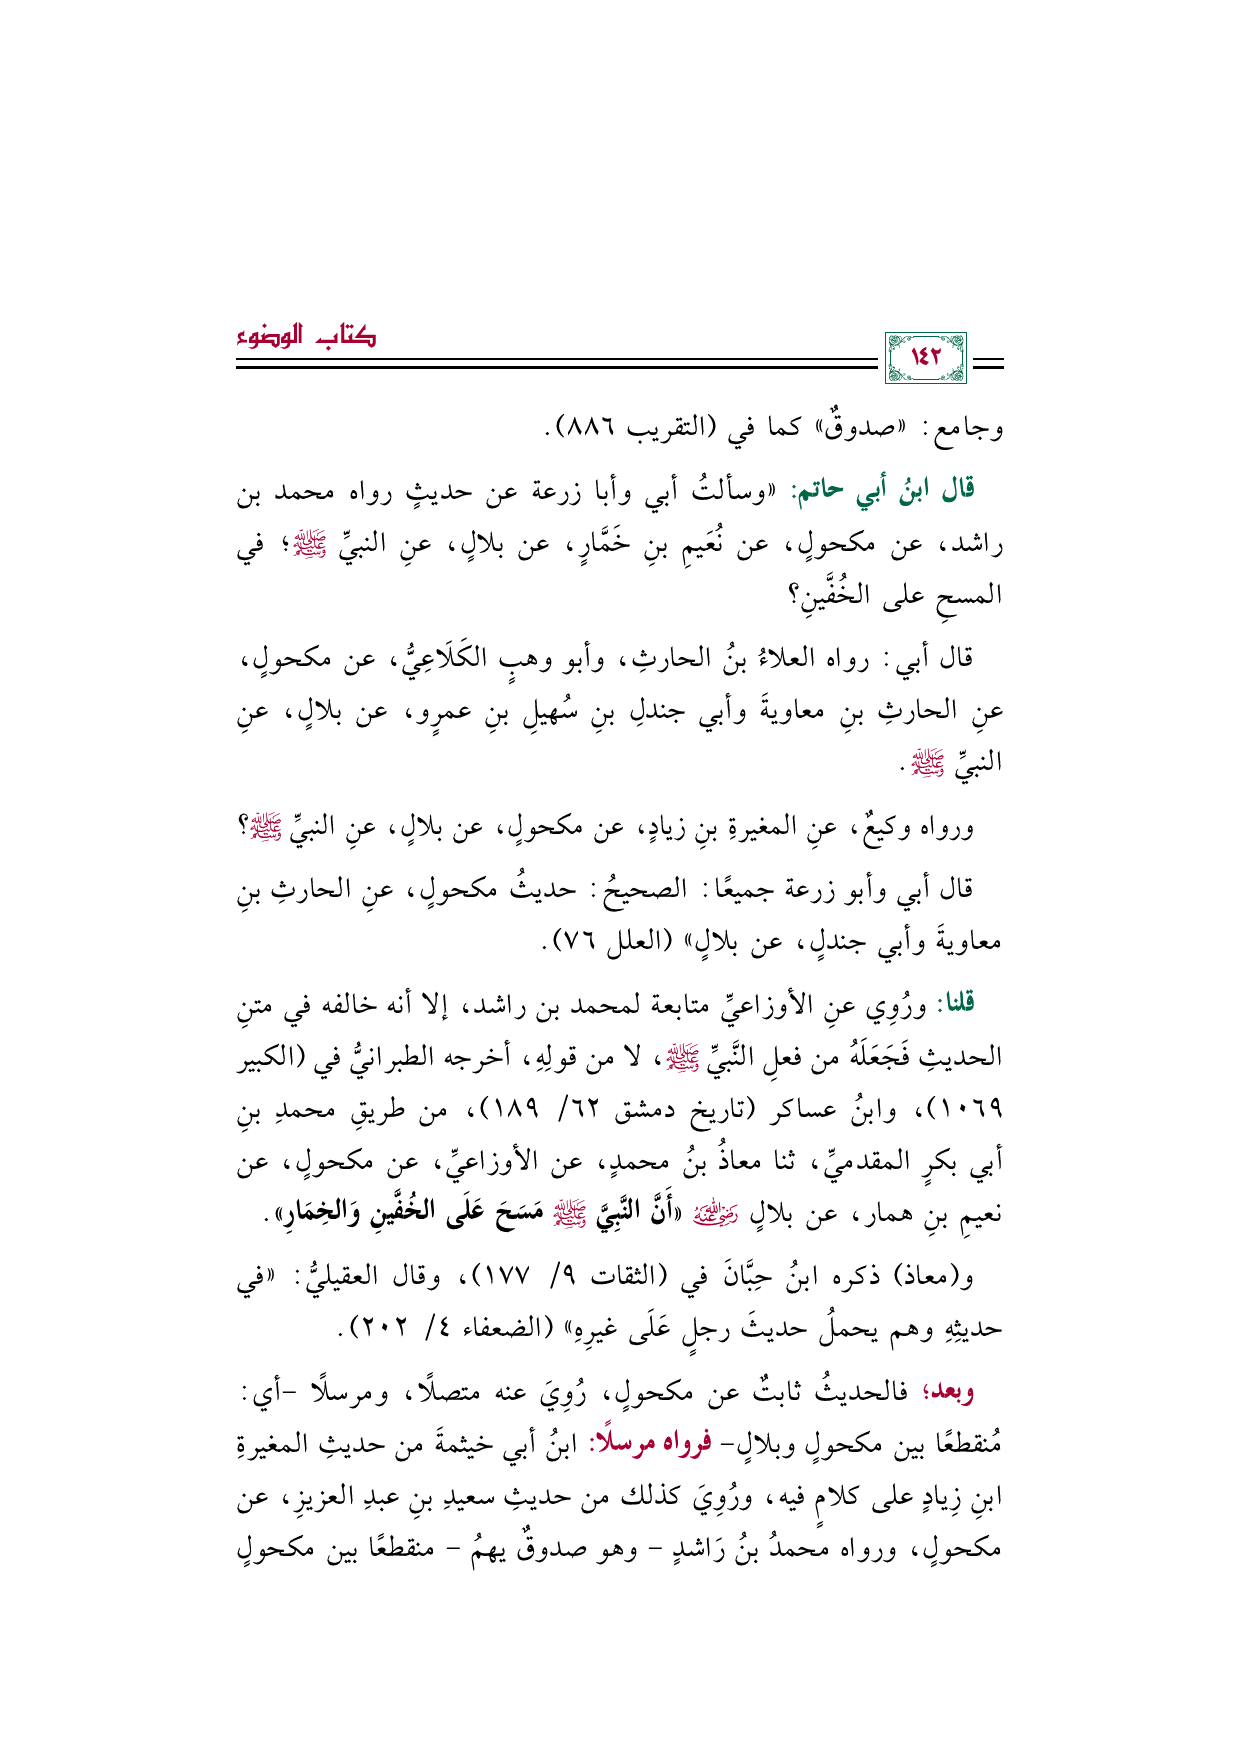 كتاب الوضوء
١٤٢
وجامع: «صدوقٌ» كما في (التقريب ٨٨٦).
قال ابنُ أبي حاتم: «وسألتُ أبي وأبا زرعة عن حديثٍ رواه محمد بن
راشد، عن مكحولٍ، عن نُعَيمِ بنِ خَمَّارٍ، عن بلالٍ، عنِ النبيِّ ﷺ؛ في
المسحِ على الخُفَّينِ؟
قال أبي: رواه العلاءُ بنُ الحارثِ، وأبو وهبٍ الكَلَاعِيُّ، عن مكحولٍ،
عنِ الحارثِ بنِ معاويةَ وأبي جندلِ بنِ سُهيلِ بنِ عمرٍو، عن بلالٍ، عنِ
النبيِّ ﷺ.
ورواه وكيعٌ، عنِ المغيرةِ بنِ زيادٍ، عن مكحولٍ، عن بلالٍ، عنِ النبيِّ ﷺ؟
قال أبي وأبو زرعة جميعًا: الصحيحُ: حديثُ مكحولٍ، عنِ الحارثِ بنِ
معاويةَ وأبي جندلٍ، عن بلالٍ» (العلل ٧٦).
قلنا: ورُوِي عنِ الأوزاعيِّ متابعة لمحمد بن راشد، إلا أنه خالفه في متنِ
الحديثِ فَجَعَلَهُ من فعلِ النَّبيِّ ﷺ، لا من قولِهِ، أخرجه الطبرانيُّ في (الكبير
١٠٦٩)، وابنُ عساكر (تاريخ دمشق ٦٢/ ١٨٩)، من طريقِ محمدِ بنِ
أبي بكرٍ المقدميِّ، ثنا معاذُ بنُ محمدٍ، عن الأوزاعيِّ، عن مكحولٍ، عن
نعيمِ بنِ همار، عن بلالٍ رضي الله عنه «أَنَّ النَّبِيَّ ﷺ مَسَحَ عَلَى الخُفَّينِ وَالخِمَارِ».
و(معاذ) ذكره ابنُ حِبَّانَ في (الثقات ٩/ ١٧٧)، وقال العقيليُّ: «في
حديثِهِ وهم يحملُ حديثَ رجلٍ عَلَى غيرِهِ» (الضعفاء ٤/ ٢٠٢).
وبعد؛ فالحديثُ ثابتٌ عن مكحولٍ، رُوِيَ عنه متصلًا، ومرسلًا -أي:
مُنقطعًا بين مكحولٍ وبلالٍ- فرواه مرسلًا: ابنُ أبي خيثمةَ من حديثِ المغيرةِ
ابنِ زِيادٍ على كلامٍ فيه، ورُوِيَ كذلك من حديثِ سعيدِ بنِ عبدِ العزيزِ، عن
مكحولٍ، ورواه محمدُ بنُ رَاشدٍ - وهو صدوقٌ يهمُ - منقطعًا بين مكحولٍ